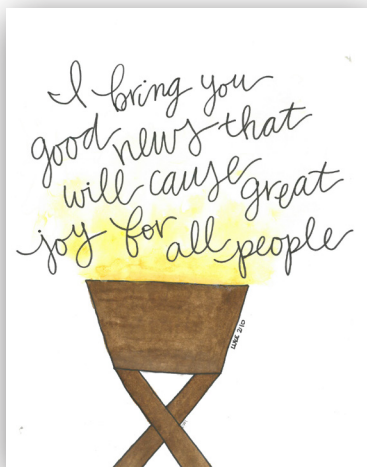 I bring you
good news that
will cause great
joy for all people
LUKE 2:10